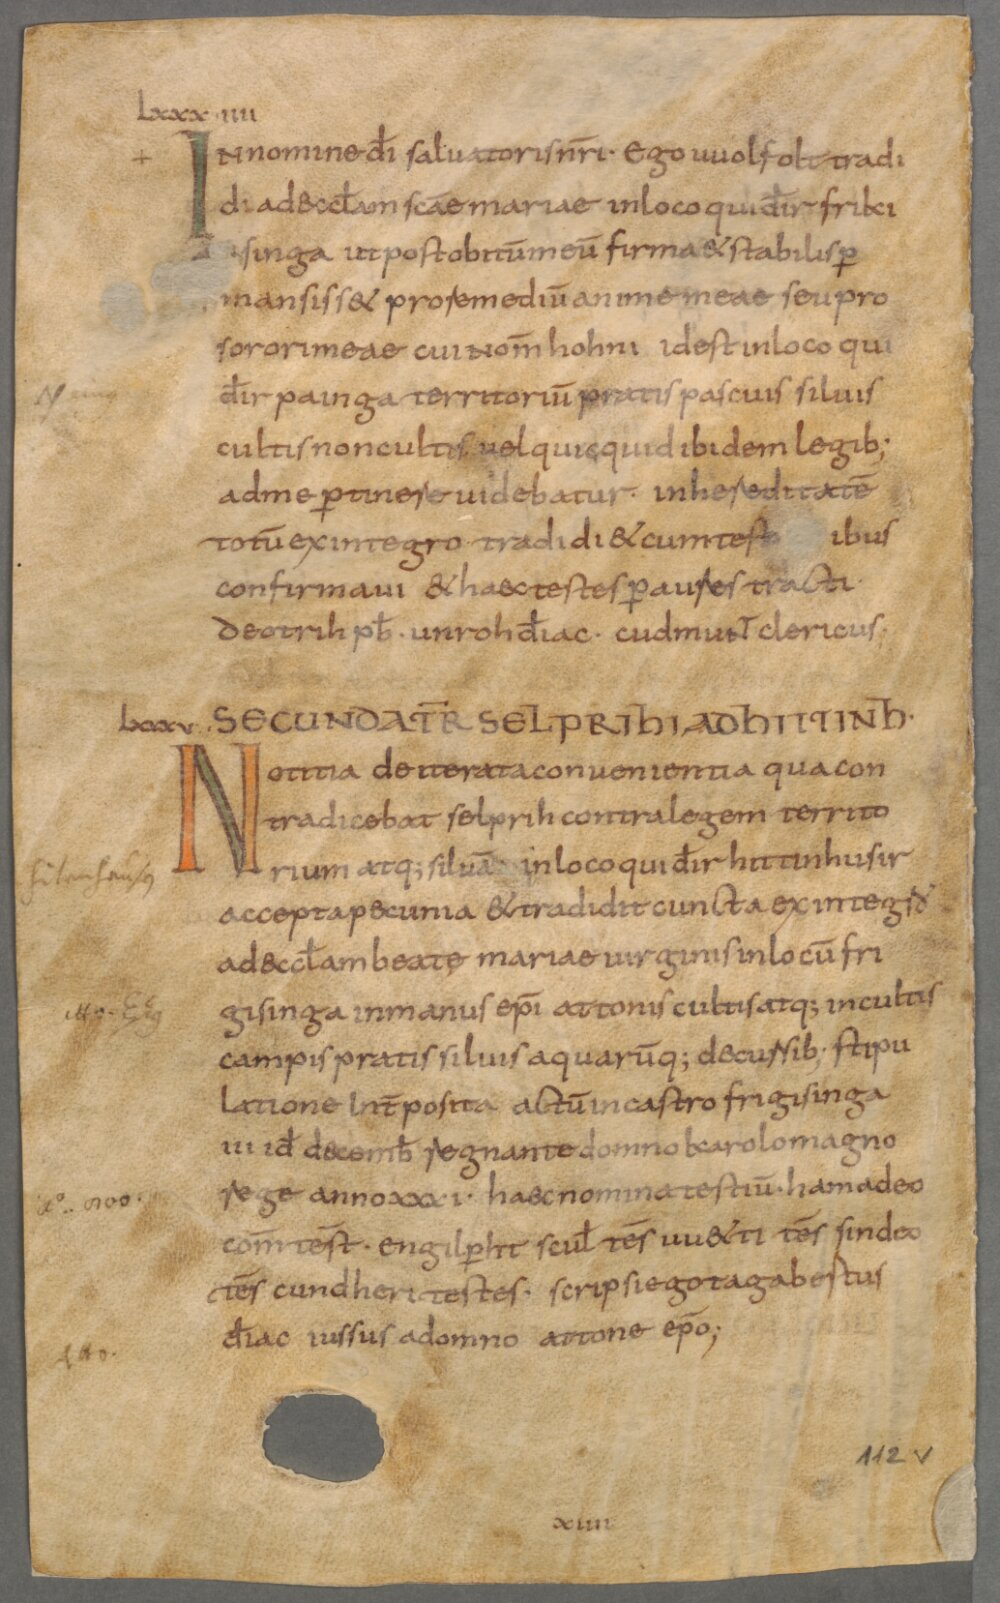 Lxxx·iiii
+ IN nomine dī saluatoris nr̄i· Ego uuolfolt tradi
di ad eccłam scae mariae in loco qui dr̄ friki
singa ut post obitū meū firma & stabilis p̄
mansiss& pro remediū anime meae seu pro
sorori meae cui nom̄ hohni id est in loco qui
dr̄ painga territoriū pratis pascuis siluis
cultis non cultis uel quicquid ibidem legib;
ad me p̄tinere uidebatur· in hereditatē
totū ex integro tradidi & cum test ibus
confirmaui & haec testes p̄ aures tracti·
deotrih pb̄· unroh diac̄· cudmunt clericus·
Lxxxv· SECUNDA TR̄ SELPRIHI AD HITINH·
Notitia de iterata conuenientia qua con
tradicebat selprih contra legem territo
rium atq; siluā in loco qui dr̄ hittinhusir
accepta pecunia & tradidit cuncta ex integro
ad eccłam beatę mariae uirginis in locū fri
gisinga in manus ep̄i attonis cultis atq; incultis
campis pratis siluis aquarūq; decursib; stipu
latione int̄posita actū in castro frigisinga
iii id̄ decemb̄ regnante domno karolo magno
rege anno xxx·i· haec nomina testiū· hamadeo
com̄ test̄· engilp̄ht scul̄ tes̄ uu&ti tes̄ sindeo
tes̄ cundheri testes· scripsi ego tagabertus
diac̄ iussus a domno attone ep̄o;
hitenhausn
Atto·
112 v
xiiii